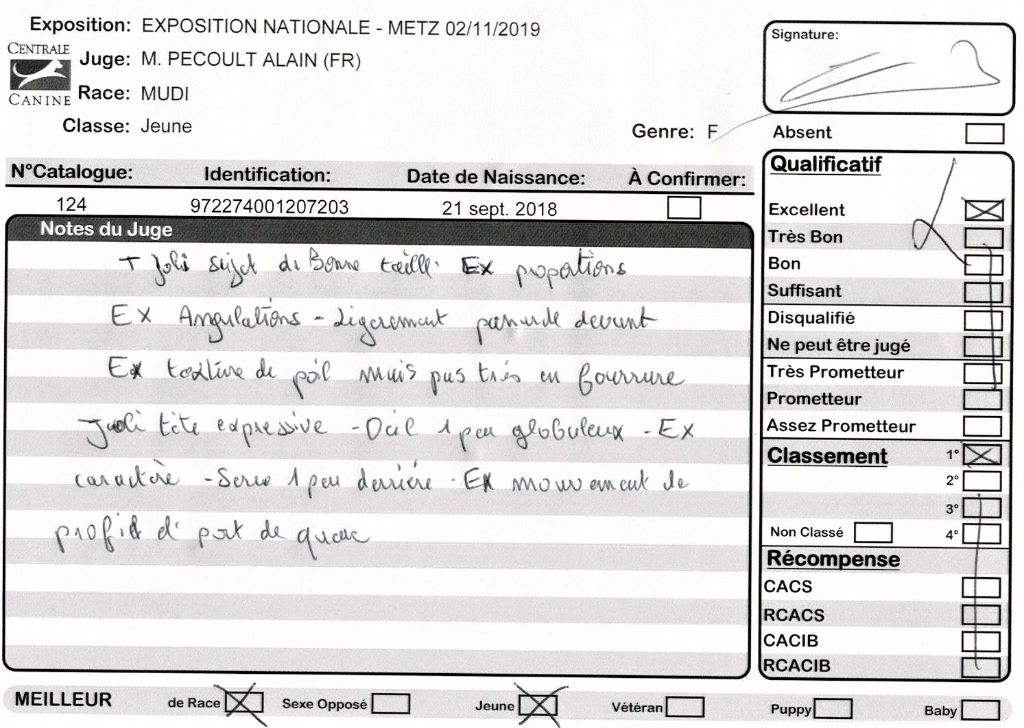 Exposition: EXPOSITION NATIONALE - METZ 02/11/2019
CENTRALE CANINE
Juge: M. PECOULT ALAIN (FR)
Race: MUDI
Classe: Jeune
Genre: F
Signature:
Absent
N°Catalogue: Identification: Date de Naissance: À Confirmer:
124 972274001207203 21 sept. 2018
Notes du Juge
T Joli sujet de Bonne taille. Ex proportions
Ex Angulations - Ligerement panarde devant
Ex texture de poil mais pas très en fourrure
Joli tête expressive - Oeil 1 peu globuleux - Ex
caractère - Serre 1 peu derrière - Ex mouvement de
profil et port de queue
Qualificatif
Excellent
Très Bon
Bon
Suffisant
Disqualifié
Ne peut être jugé
Très Prometteur
Prometteur
Assez Prometteur
Classement 1°
2°
3°
Non Classé 4°
Récompense
CACS
RCACS
CACIB
RCACIB
MEILLEUR de Race Sexe Opposé Jeune Vétéran Puppy Baby